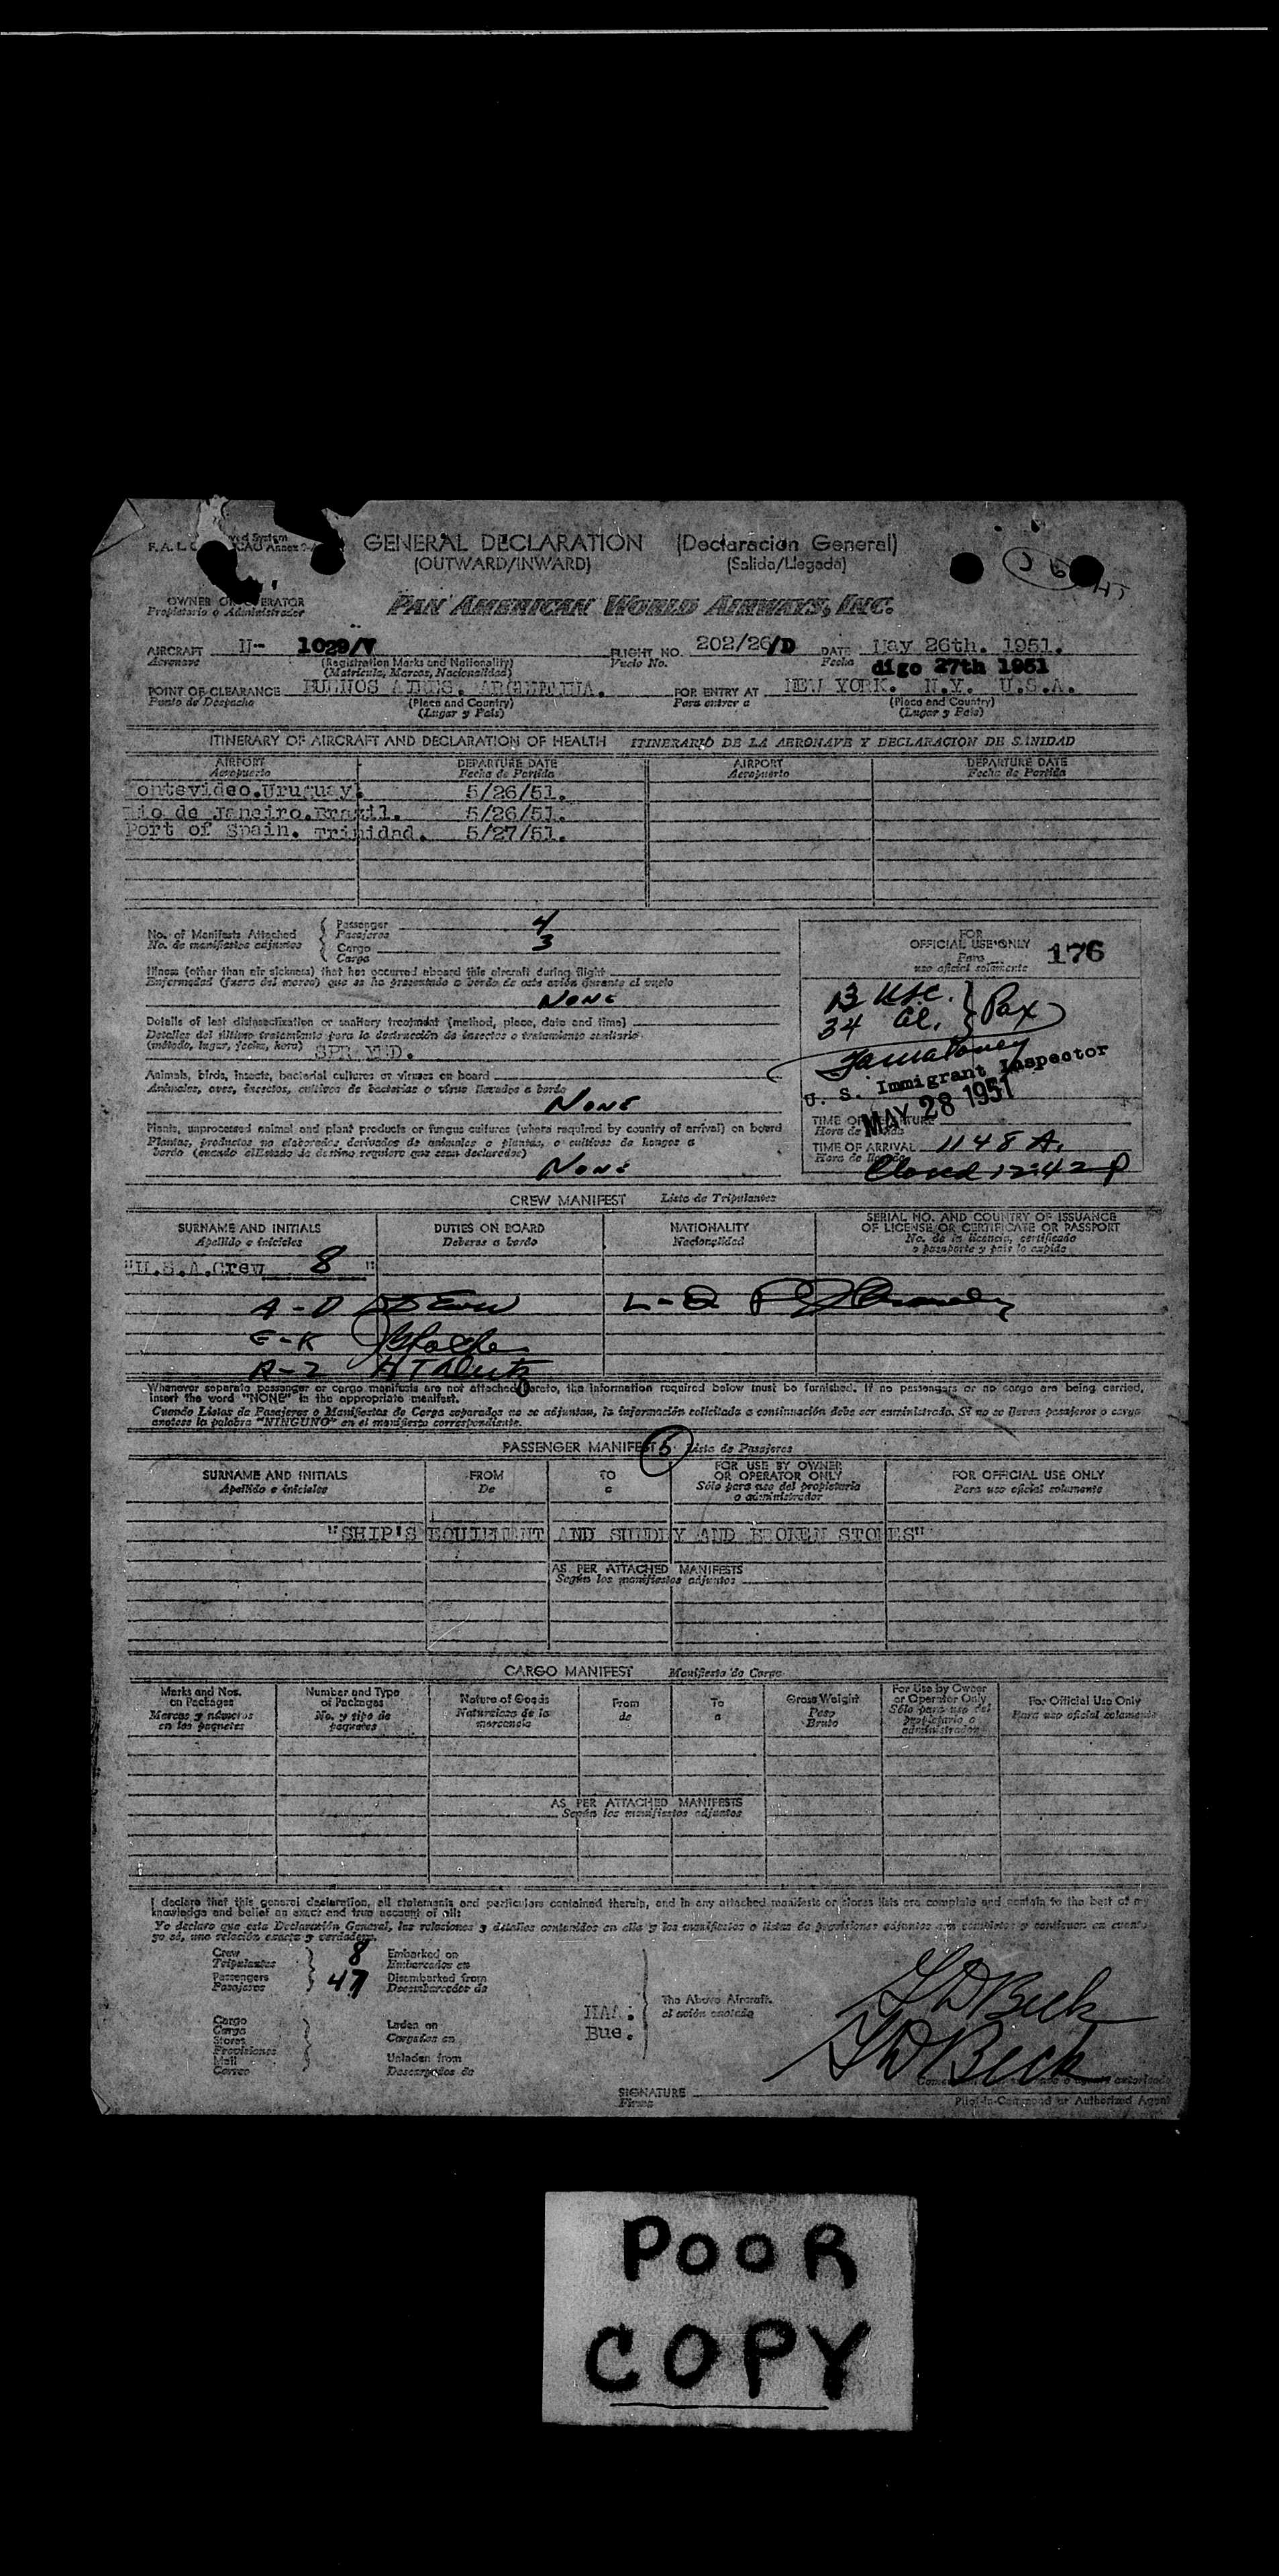 GENERAL DECLARATION (Declaración General)
(OUTWARD/INWARD) (Salida/Llegada)
OWNER OR OPERATOR
Propietario o Administrador
PAN AMERICAN WORLD AIRWAYS, INC.
AIRCRAFT 1029/V FLIGHT NO. 202/26/D DATE May 26th. 1951.
Aeronave (Registration Marks and Nationality) Vuelo No. Fecha digo 27th 1951
(Matrícula, Marcas, Nacionalidad)
POINT OF CLEARANCE BUENOS AIRES. ARGENTINA. FOR ENTRY AT NEW YORK. N.Y. U.S.A.
Punto de Despacho (Place and Country) Para entrar a (Place and Country)
(Lugar y País) (Lugar y País)
ITINERARY OF AIRCRAFT AND DECLARATION OF HEALTH ITINERARIO DE LA AERONAVE Y DECLARACION DE SANIDAD
AIRPORT DEPARTURE DATE AIRPORT DEPARTURE DATE
Aeropuerto Fecha de Partida Aeropuerto Fecha de Partida
ontevideo.Uruguay. 5/26/51.
io de Janeiro.Brazil. 5/26/51.
Port of Spain. Trinidad. 5/27/51.
No. of Manifests Attached Passenger 4
No. de manifiestos adjuntos Pasajeros
Cargo 3
Carga
FOR
OFFICIAL USE ONLY 176
Para
uso oficial solamente
Illness (other than air sickness) that has occurred aboard this aircraft during flight
Enfermedad (fuera del mareo) que se ha presentado a bordo de este avión durante el vuelo
NONE
13 USC. } Pax
34 al.
Details of last disinsectization or sanitary treatment (method, place, date and time)
Detalles del último tratamiento para la destrucción de insectos o tratamiento sanitario
(método, lugar, fecha, hora) SPRAYED.
U. S. Immigrant Inspector
MAY 28 1951
Animals, birds, insects, bacterial cultures or viruses on board
Animales, aves, insectos, cultivos de bacterias o virus llevados a bordo
NONE
Plants, unprocessed animal and plant products or fungus cultures (where required by country of arrival) on board
Plantas, productos no elaborados derivados de animales o plantas, o cultivos de hongos a
bordo (cuando el Estado de destino requiere que sean declarados)
NONE
TIME OF DEPARTURE
Hora de
TIME OF ARRIVAL 1148 A.
Hora de llegada
Closed 12:42 P
CREW MANIFEST Lista de Tripulantes
SURNAME AND INITIALS DUTIES ON BOARD NATIONALITY SERIAL NO. AND COUNTRY OF ISSUANCE
OF LICENSE OR CERTIFICATE OR PASSPORT
Apellido e iniciales Deberes a bordo Nacionalidad No. de la licencia, certificado
o pasaporte y país lo expide
"U.S.A.Crew 8 "
A-D L-Q
E-K
R-Z
Whenever separate passenger or cargo manifests are not attached hereto, the information required below must be furnished. If no passengers or no cargo are being carried,
insert the word "NONE" in the appropriate manifest.
Cuando Listas de Pasajeros o Manifiestos de Carga separados no se adjuntan, la información solicitada a continuación debe ser suministrada. Si no se llevan pasajeros o carga
anótese la palabra "NINGUNO" en el manifiesto correspondiente.
PASSENGER MANIFEST 5 Lista de Pasajeros
SURNAME AND INITIALS FROM TO FOR USE BY OWNER
OR OPERATOR ONLY FOR OFFICIAL USE ONLY
Apellido e iniciales De a Sólo para uso del propietario
o administrador Para uso oficial solamente
"SHIP'S EQUIPMENT AND SUNDRY AND BROKEN STORES"
AS PER ATTACHED MANIFESTS
Según los manifiestos adjuntos
CARGO MANIFEST Manifiesto de Carga
Marks and Nos. on Packages Number and Type of Packages Nature of Goods From To Gross Weight For Use by Owner or Operator Only For Official Use Only
Marcas y números en los paquetes No. y tipo de paquetes Naturaleza de la mercancía de a Peso Bruto Sólo para uso del propietario o administrador Para uso oficial solamente
AS PER ATTACHED MANIFESTS
Según los manifiestos adjuntos
I declare that this general declaration, all statements and particulars contained therein, and in any attached manifests or stores lists are complete and contain to the best of my
knowledge and belief an exact and true account of all:
Yo declaro que esta Declaración General, las relaciones y detalles contenidos en ella y los manifiestos o listas de provisiones adjuntos son completos y contienen en cuanto
yo sé, una relación exacta y verdadera.
Crew 8 Embarked on
Tripulantes Embarcados en
Passengers 47 Disembarked from
Pasajeros Desembarcados de
The Above Aircraft.
el avión anotado
Bue.
Cargo Laden on
Carga Cargados en
Stores
Provisiones
Mail Unladen from
Correo Descargados de
G D Beck
G D Beck
SIGNATURE
Firma
Pilot-in-Command or Authorized Agent
POOR
COPY